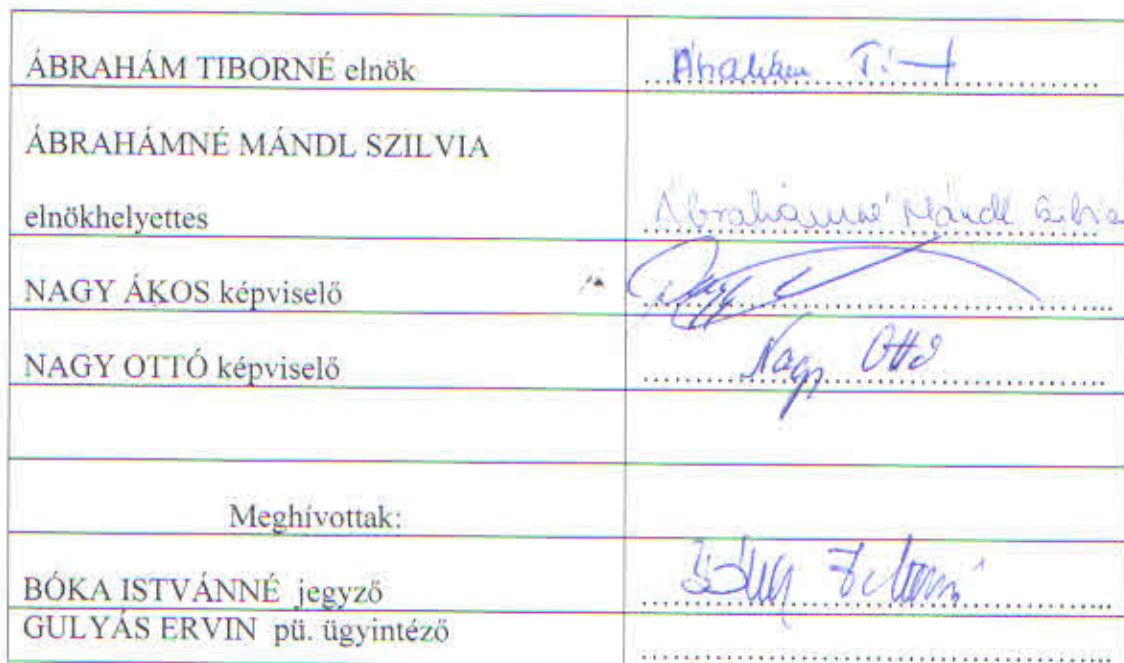 ÁBRAHÁM TIBORNÉ elnök
Ábrahám
ÁBRAHÁMNÉ MÁNDL SZILVIA
elnökhelyettes
Ábrahámné Mándl Szilvia
NAGY ÁKOS képviselő
Nagy
NAGY OTTÓ képviselő
Nagy Ottó
Meghívottak:
BÓKA ISTVÁNNÉ jegyző
Bóka Istvánné
GULYÁS ERVIN pü. ügyintéző